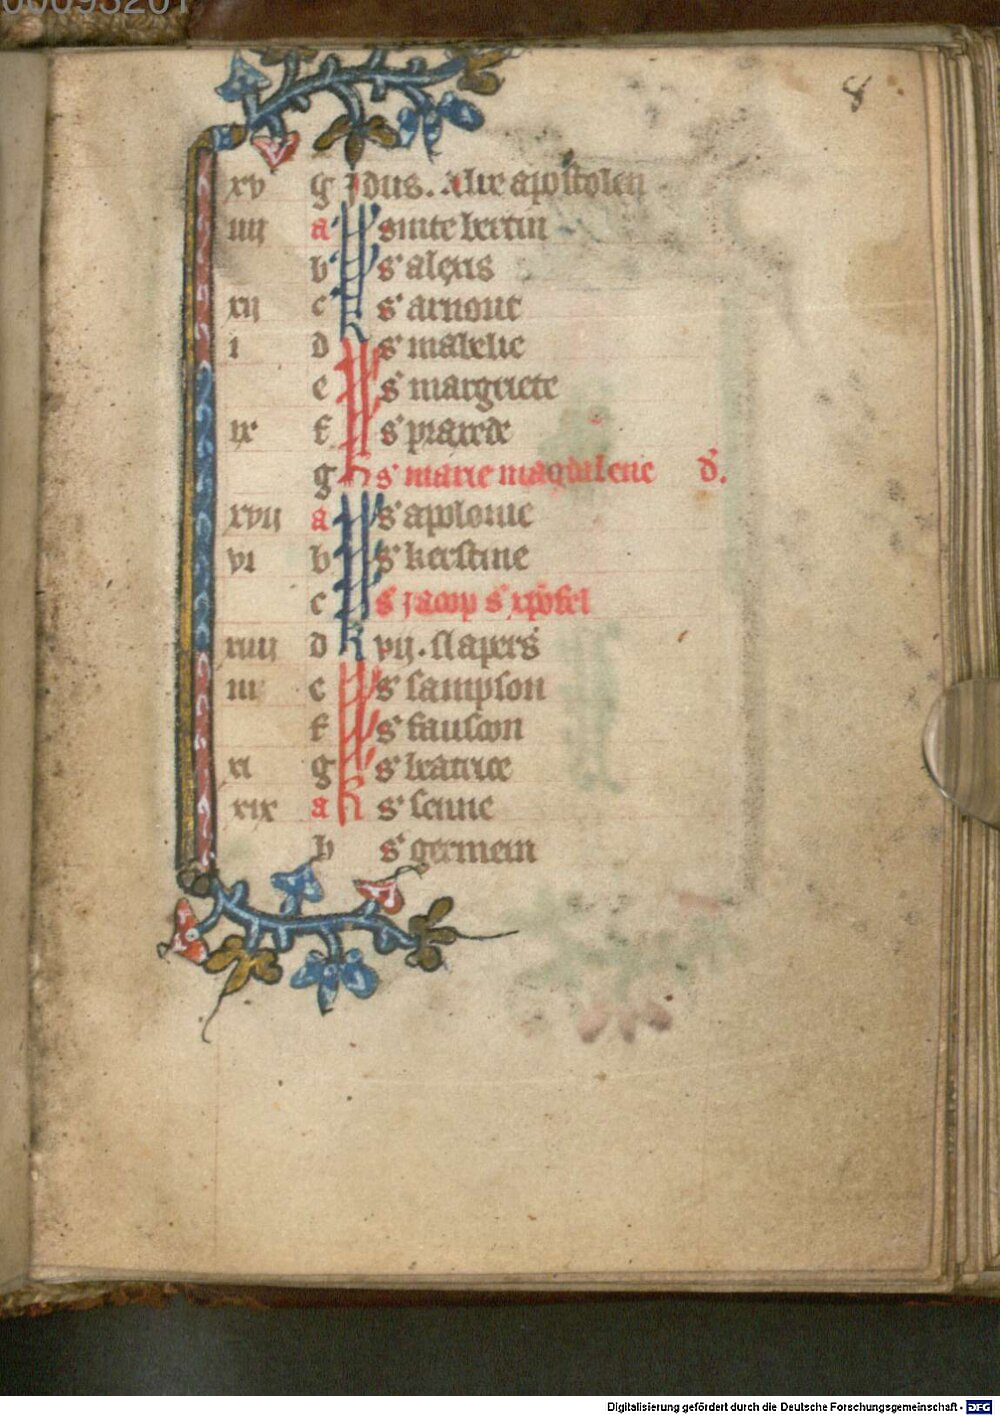 8
xv g Jdus. Alle apostolen
iiij a sinte bertin
b s' alexis
xij c s' arnout
i d s' mabelie
e s' margriete
ix f s' praxede
g s' marie magdalene d'.
xvij a s' apolonie
vi b s' kerstine
c s' jacop s' xpofel
xiiij d vij. slapers
iij e s' sampson
f s' faustin
xi g s' beatrice
xix a s' senne
b s' germein
Digitalisierung gefördert durch die Deutsche Forschungsgemeinschaft - DFG